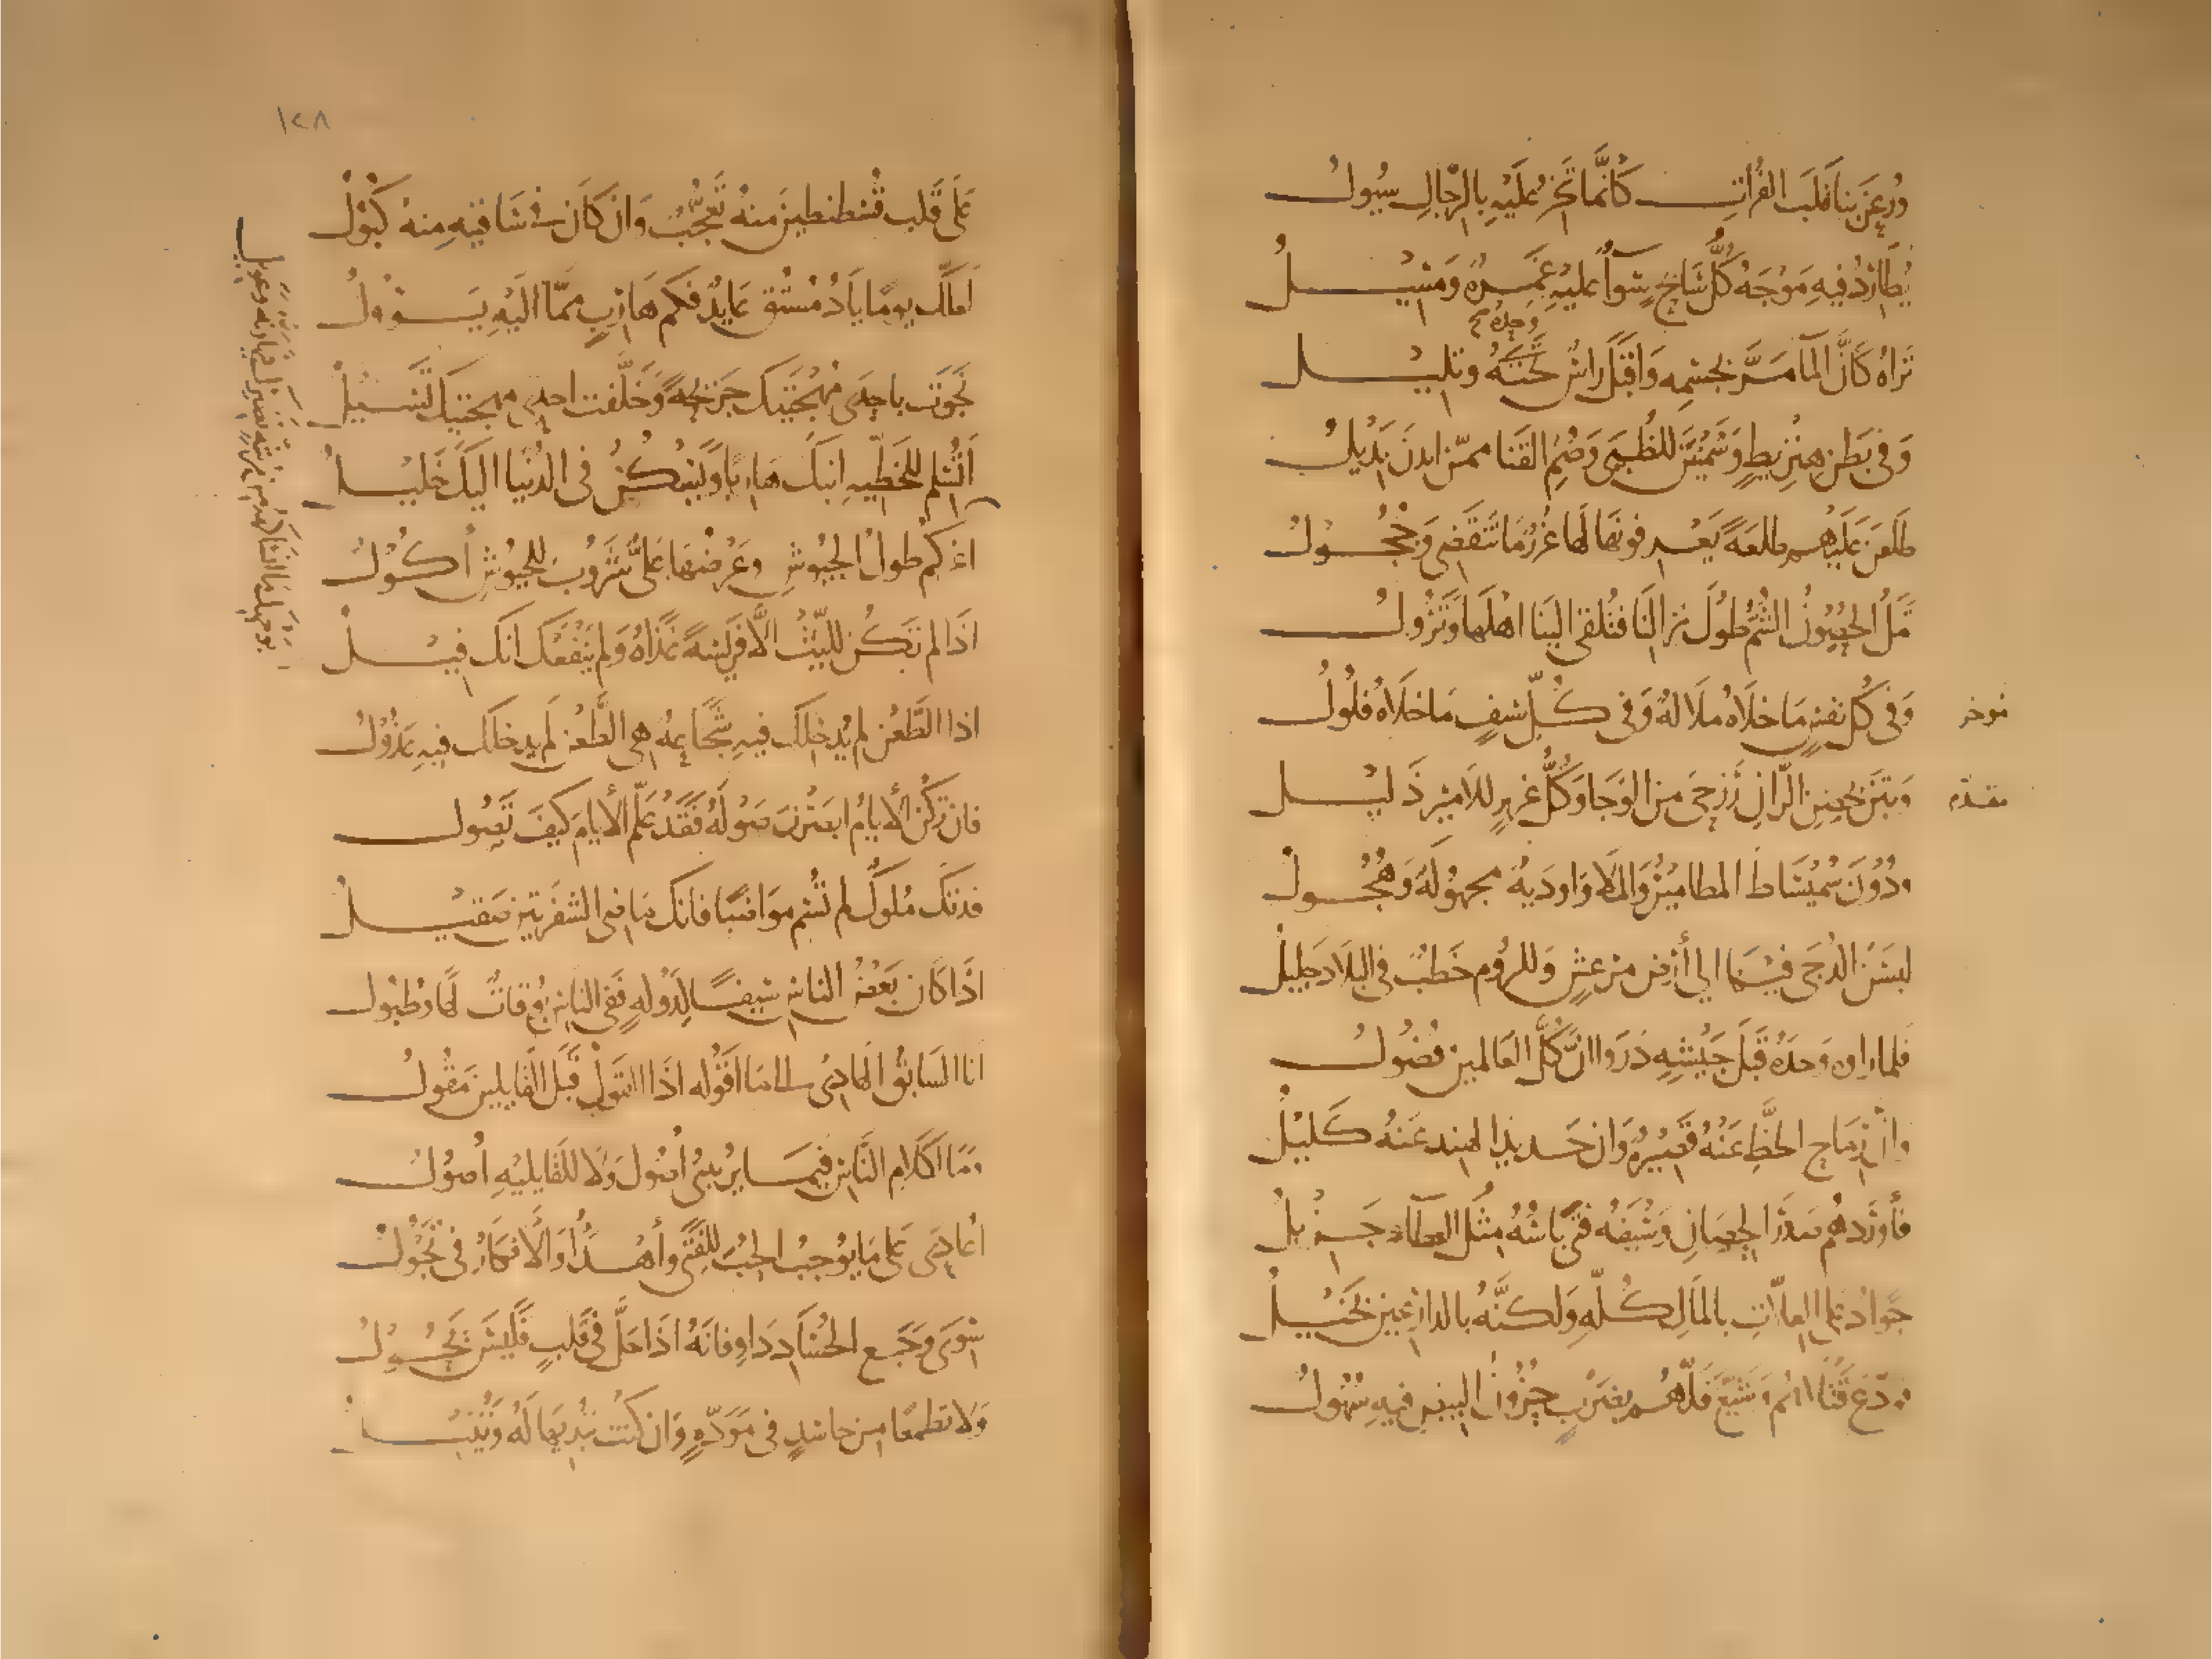 ورعن بنا قلب الفرات كأنما تخر عليه بالرجال سيول
يطارد فيه موجه كل سابح سواء عليه غمرة ومسيل
تراه كأن الما مر بجسمه واقبل راس تحته وتليل
وحده
وفى بطن هنزيط وسمنين للظبى وصم القنا ممن ابدن بديل
طلعن عليهم طلعة يعرفونها لها غرر ما تنقضى وحجول
تمل الحصون الشم طول نزالنا فتلقى الينا اهلها وتزول
موخر
وفى كل نفس ما خلاه ملالة وفى كل سيف ما خلاه فلول
مقدم
وبتن بحصن الران رزحى من الوجا وكل عزيز للامير ذليل
ودون سميساط المطامير والملا واودية مجهولة وهجول
لبسن الدجى فيها الى أرض مرعش وللروم خطب فى البلاد جليل
فلما راوه وحده قبل جيشه دروا ان كل العالمين فضول
وان رماح الخط عنه قصيرة وان حديد الهند عنه كليل
فأوردهم صدر الحصان وسيفه فتى باسه مثل العطاء جزيل
جواد على العلات بالمال كله ولكنه بالدارعين بخيل
فودع قتلاهم وشيع فلهم بضرب حزون البيض فيه سهول
١٢٨
على قلب قسطنطين منه تعجب وان كان فى ساقيه منه كبول
لعلك يوما يا دمستق عايد فكم هارب مما اليه يؤول
نجوت باحدى مهجتيك جريحة وخلفت احدى مهجتيك تسيل
اتسلم للخطية ابنك هاربا ويسكن فى الدنيا اليك خليل
اغركم طول الجيوش وعرضها على شروب للجيوش أكول
اذا لم تكن لليث الا فريسة غذاه ولم ينفعك انك فيل
اذا الطعن لم يدخلك فيه شجاعة هى الطعن لم يدخلك فيه عذول
فان تكن الأيام ابصرن صوله فقد علم الأيام كيف تصول
فدتك ملوك لم تسم مواضيا فانك ماضى الشفرتين صقيل
اذا كان بعض الناس سيفا لدولة ففى الناس بوقات لها وطبول
انا السابق الهادى الى ما اقوله اذ القول قبل القايلين مقول
وما لكلام الناس فيما يريبنى أصول ولا للقايليه أصول
أعادى على ما يوجب الحب للفتى وأهدأ والأفكار فى تجول
سوى وجع الحساد داو فانه اذا حل فى قلب فليس يحول
ولا تطمعا من حاسد فى مودة وان كنت تبديها له وتنيل